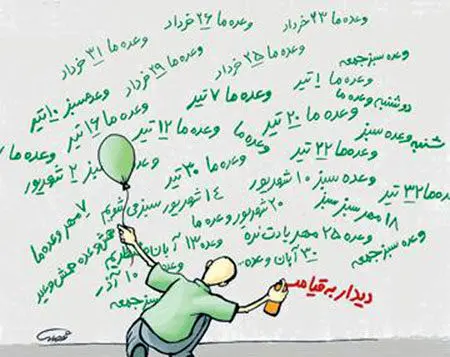 وعده ما ۲۳ خرداد
وعده ما ۲۶ خرداد
وعده ما ۳۱ خرداد
وعده ما ۲۵ خرداد
وعده ما ۲۹ خرداد
وعده سبز جمعه
وعده ما ۱ تیر
وعده ما ۷ تیر
وعده سبز ۱۰ تیر
دوشنبه وعده ما
وعده ما ۲۰ تیر
وعده ما ۱۲ تیر
وعده ما ۱۶ تیر
شنبه وعده سبز
وعده ما
وعده ما ۲۲ تیر
وعده ما ۳۰ تیر
سبز ۲ شهریور
وعده ما
وعده سبز ۱۰ شهریور
وعده ما ۳۲ تیر
۱۴ شهریور سبز می شویم
۲۰ شهریور وعده ما
۱۸ مهر سبز سبز
۷ مهر وعده ما
وعده ۲۵ مهر یادت نره
وعده ۱۳ آبان
۳۰ آبان وعده
وعده سبز جمعه
وعده ۱۰ آذر
سبز جمعه
دیدار به قیامت